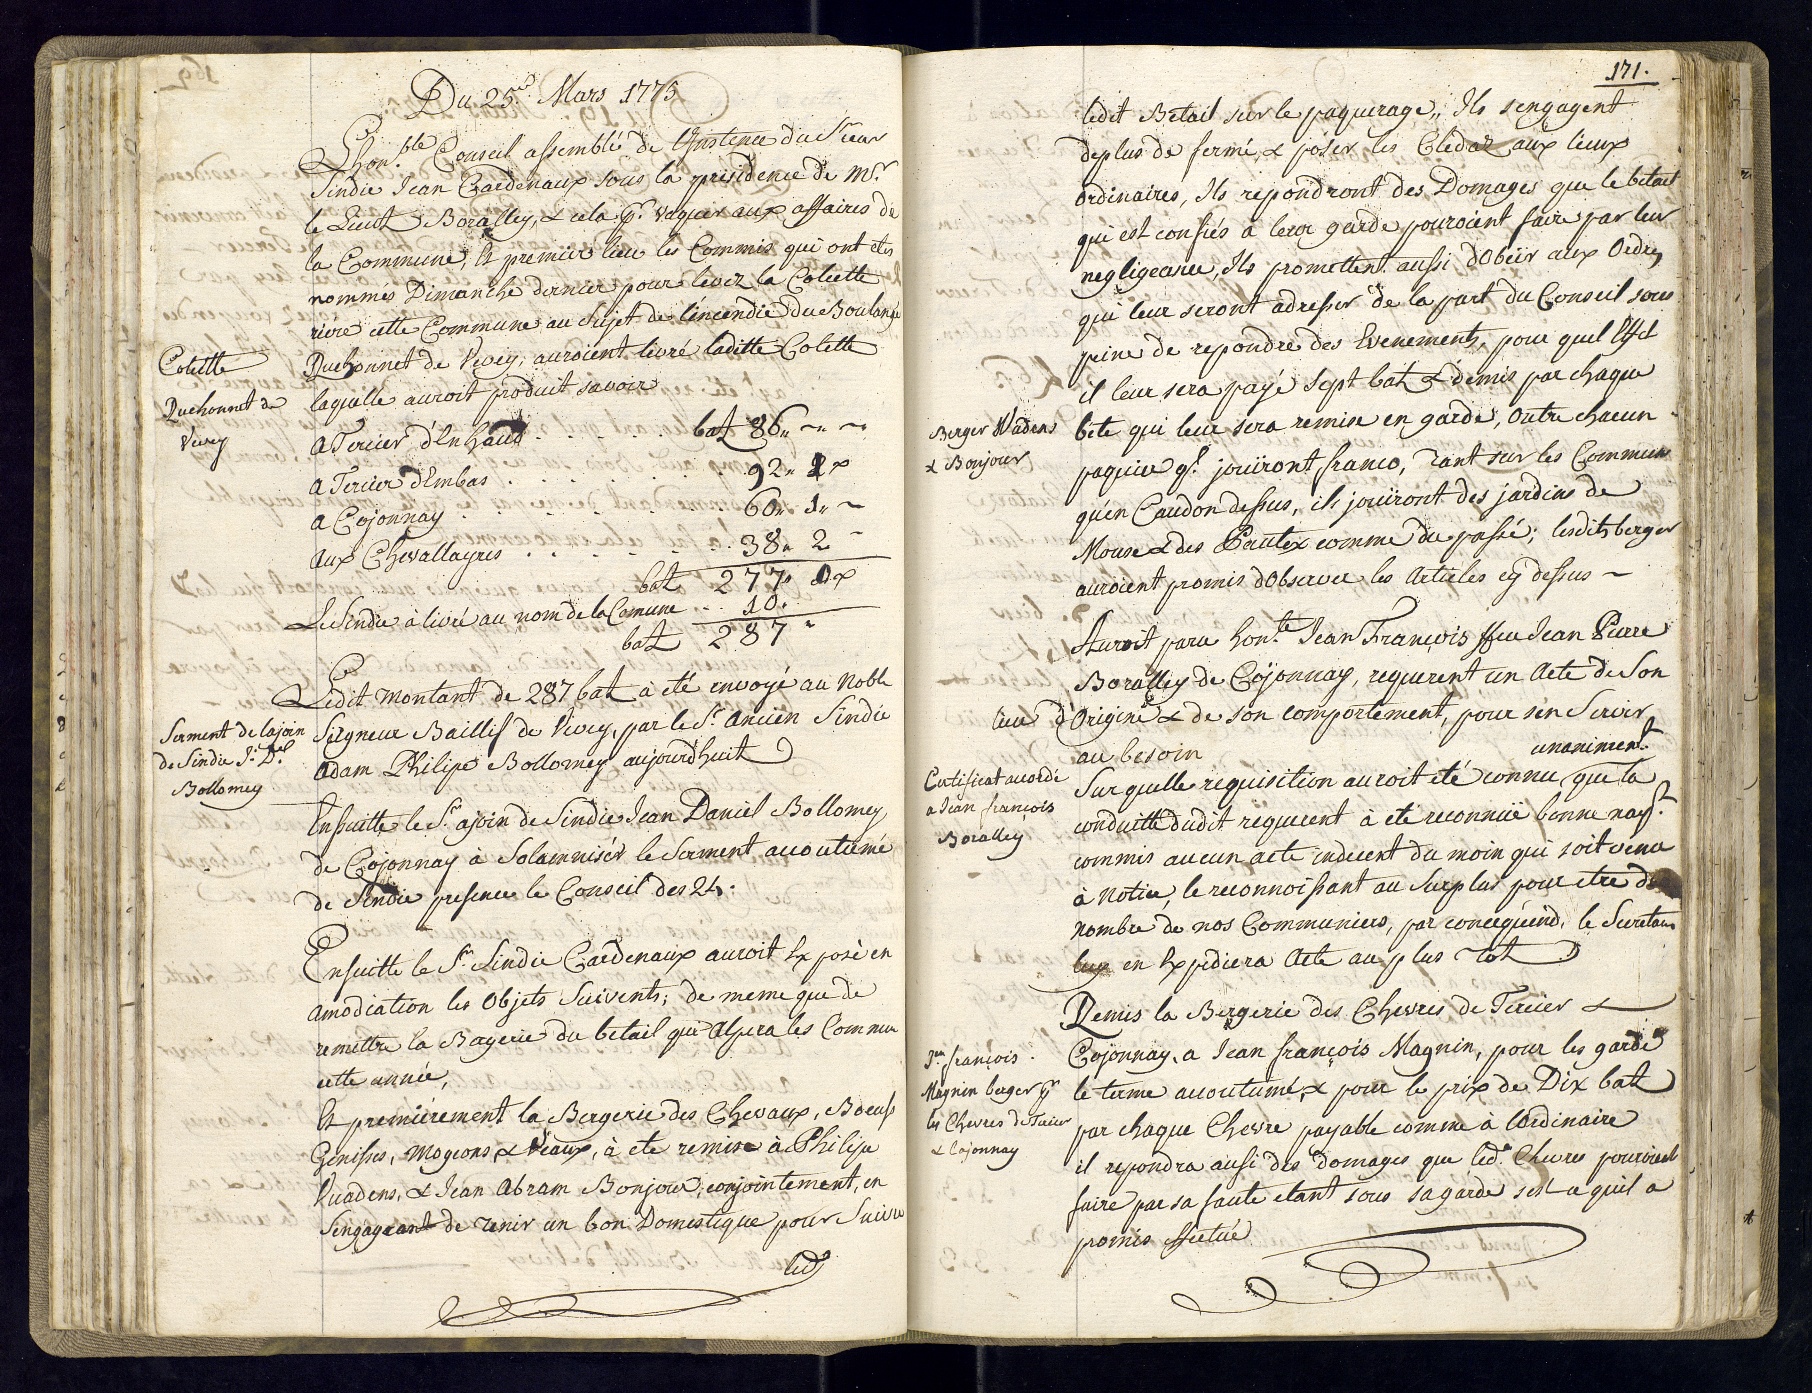 Du 25.e Mars 1775
L'hon.ble Conseil assemblé de l'Instence du Sieur
Sindic Jean Cardenaux sous la présidence de Mr.
le Lieut Boralley, & cela pr. vaquer aux affaires de
la Commune, Et premier lieu les Commis qui ont etes
nommés Dimanche dernier pour levez la Colette
riere cette Commune au Sujet de l'incendie du Boulangé
Colette
Duchonnet de Vevey, auroient livré laditte Colette
Duchonnet de
Vevey
laquelle auroit produit savoir
a Tercier d'Enhaut . . . . . . batz 86 „ ~ „ ~
a Tercier d'Embas . . . . . . . . 92 „ 1 x
a Cojonnay . . . . . . . . 60 „ 1 „ ~
aux Chevallayres . . . . . . . . 38 „ 2 ~
batz 277 „ 0 x
Le Sindic à livré au nom de la Comune . . 10 .
batz 287 "
Ledit montant de 287 batz à été envoyé au Noble
Serment de lajoin
de Sindic Jn. Del.
Bollomey
Seigneur Baillif de Vevey, par le Sr. Ancien Sindic
Adam Philipe Bollomey aujourd'huit
Ensuitte le Sr. ajoin de Sindic Jean Daniel Bollomey
de Cojonnay à Solamnisér le Serment accoutumé
de Sindic presence le Conseil des 24.
Ensuitte le Sr. Sindic Cardenaux auroit Exposé en
amodiation les Objets Suivents; de meme que de
remettre la Bagerie du betail qui Alpera les Commun
cette année,
Et premiérement la Bergerie des Chevaux, Boeufs
Génisses, mogeons, & Veaux, à ete remise à Philipe
Vuadens, & Jean Abram Bonjour, conjointement, en
Sengageant de tenir un bon Domestique pour Suivre
led.
171.
ledit Betail sur le paquerage „ Ils sengagent
deplus de fermé, & poser les Clédaz aux lieux
ordinaires, Ils repondront des Domages que le betail
qui est confiés à leur garde pouroient faire par leur
negligeance, Ils promettent aussi dObeir aux Ordres
qui leur seront adresser de la part du Conseil sous
peine de repondre des Evenements. pour quel Effet
il leur sera payé Sept batz & demis par chaque
Berger Vuadens
& Bonjour
bete qui leur sera remise en garde, Outre chacun
paquier ql. jouïront franco, Tant sur les Commun
quén Caudon dessus, ils jouïront des jardins de
Mouse & des Pautex comme du passé; lesdits berger
auroient promis dObserver les Articles cy dessus ~
Auroit paru hon.te Jean François ffeu Jean Pierre
Boralley de Cojonnay, requerent un Acte de Son
lieu d'Origine & de son comportement, pour s'en Servir
au besoin
unaniment
Certificat acordé
a Jean françois
Boralley
Sur quelle requisition auroit eté connu, que la
conduitte dudit requerent à eté reconnuë bonne nayt.
commis aucun acte indecent du moin qui soit venu
à Notice, le reconnoissant au Surplus pour etre du
nombre de nos Communiers, par concequend, le Secretaire
en Expediera Acte au plus Tot
Remis la Bergerie des Chevres de Tercier &
Jn. françois
Magnin berger pr
les Chevres de Tercier
& Cojonnay
Cojonnay, a Jean françois Magnin, pour les garde
le terme accoutumé, & pour le prix de Dix batz
par chaque Chevre payable comme à lordinaire
il repondra ausi des domages que led. Chevres pouroient
faire par sa faute etant sous sa garde, cest a quil a
promis effectué